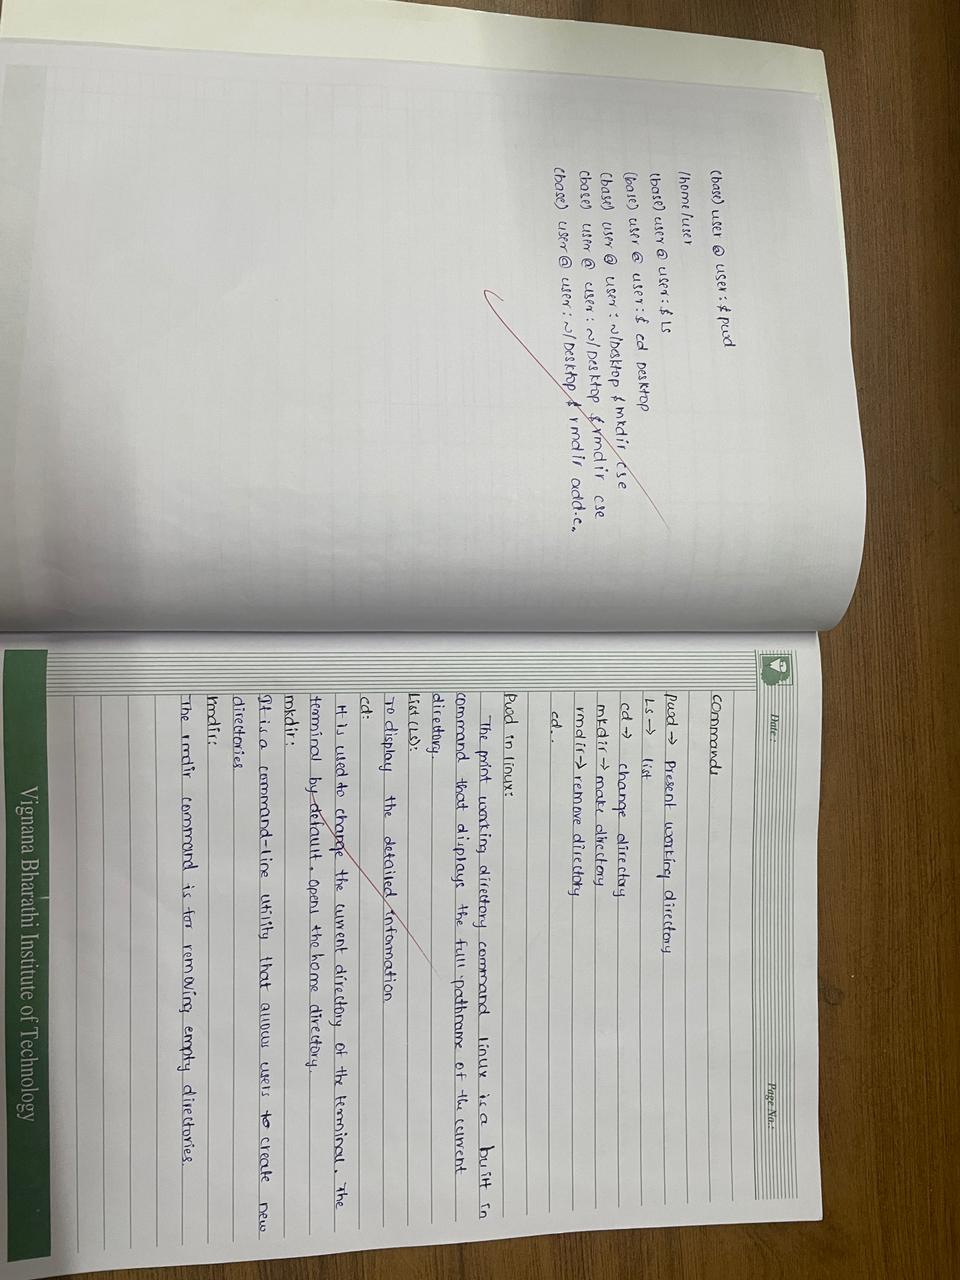 (base) user @ user: $ pwd
/home/user
(base) user @ user: $ Ls
(base) user @ user: $ cd Desktop
(base) user @ user: ~/Desktop $ mkdir cse
(base) user @ user: ~/Desktop $ rmdir cse
(base) user @ user: ~/Desktop $ rmdir add.c.
Date:
Page No.:
commands
Pwd → Present working directory
Ls → list
cd → change directory
mkdir → make directory
rmdir → remove directory
cd..
Pwd in linux:
The print working directory command linux is a built in
command that displays the full pathname of the current
directory.
List (Ls):
To display the detailed information
cd:
It is used to change the current directory of the terminal. The
terminal by default. opens the home directory.
mkdir:
It is a command-line utility that allows users to create new
directories
rmdir:
The rmdir command is for removing empty directories.
Vignana Bharathi Institute of Technology